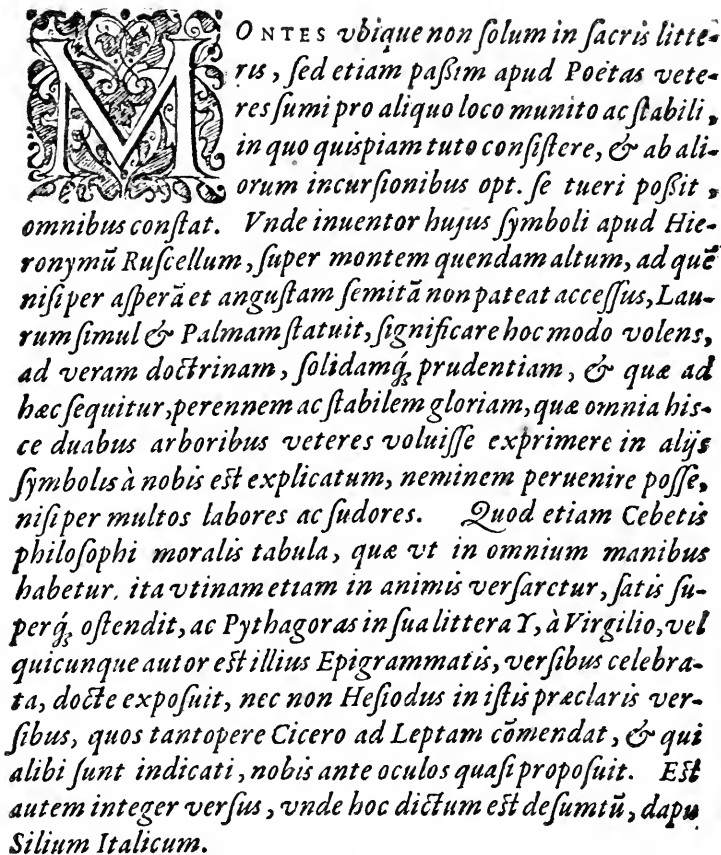 MONTES vbique non ſolum in ſacris litte-
ris, ſed etiam paßim apud Poëtas vete-
res ſumi pro aliquo loco munito ac ſtabili,
in quo quispiam tuto conſiſtere, & ab ali-
orum incurſionibus opt. ſe tueri poßit,
omnibus conſtat. Vnde inuentor hujus ſymboli apud Hie-
ronymū Ruſcellum, ſuper montem quendam altum, ad quē
niſi per aſperā et anguſtam ſemitā non pateat acceſſus, Lau-
rum ſimul & Palmam ſtatuit, ſignificare hoc modo volens,
ad veram doctrinam, ſolidamq́; prudentiam, & quæ ad
hæc ſequitur, perennem ac ſtabilem gloriam, quæ omnia his-
ce duabus arboribus veteres voluiſſe exprimere in alijs
ſymbolis à nobis eſt explicatum, neminem peruenire poſſe,
niſi per multos labores ac ſudores. Quod etiam Cebetis
philoſophi moralis tabula, quæ vt in omnium manibus
habetur, ita vtinam etiam in animis verſarctur, ſatis ſu-
perq́; oſtendit, ac Pythagoras in ſua littera Y, à Virgilio, vel
quicunque autor eſt illius Epigrammatis, verſibus celebra-
ta, docte expoſuit, nec non Heſiodus in iſtis præclaris ver-
ſibus, quos tantopere Cicero ad Leptam cōmendat, & qui
alibi ſunt indicati, nobis ante oculos quaſi propoſuit. Eſt
autem integer verſus, vnde hoc dictum eſt deſumtū, dapu
Silium Italicum.